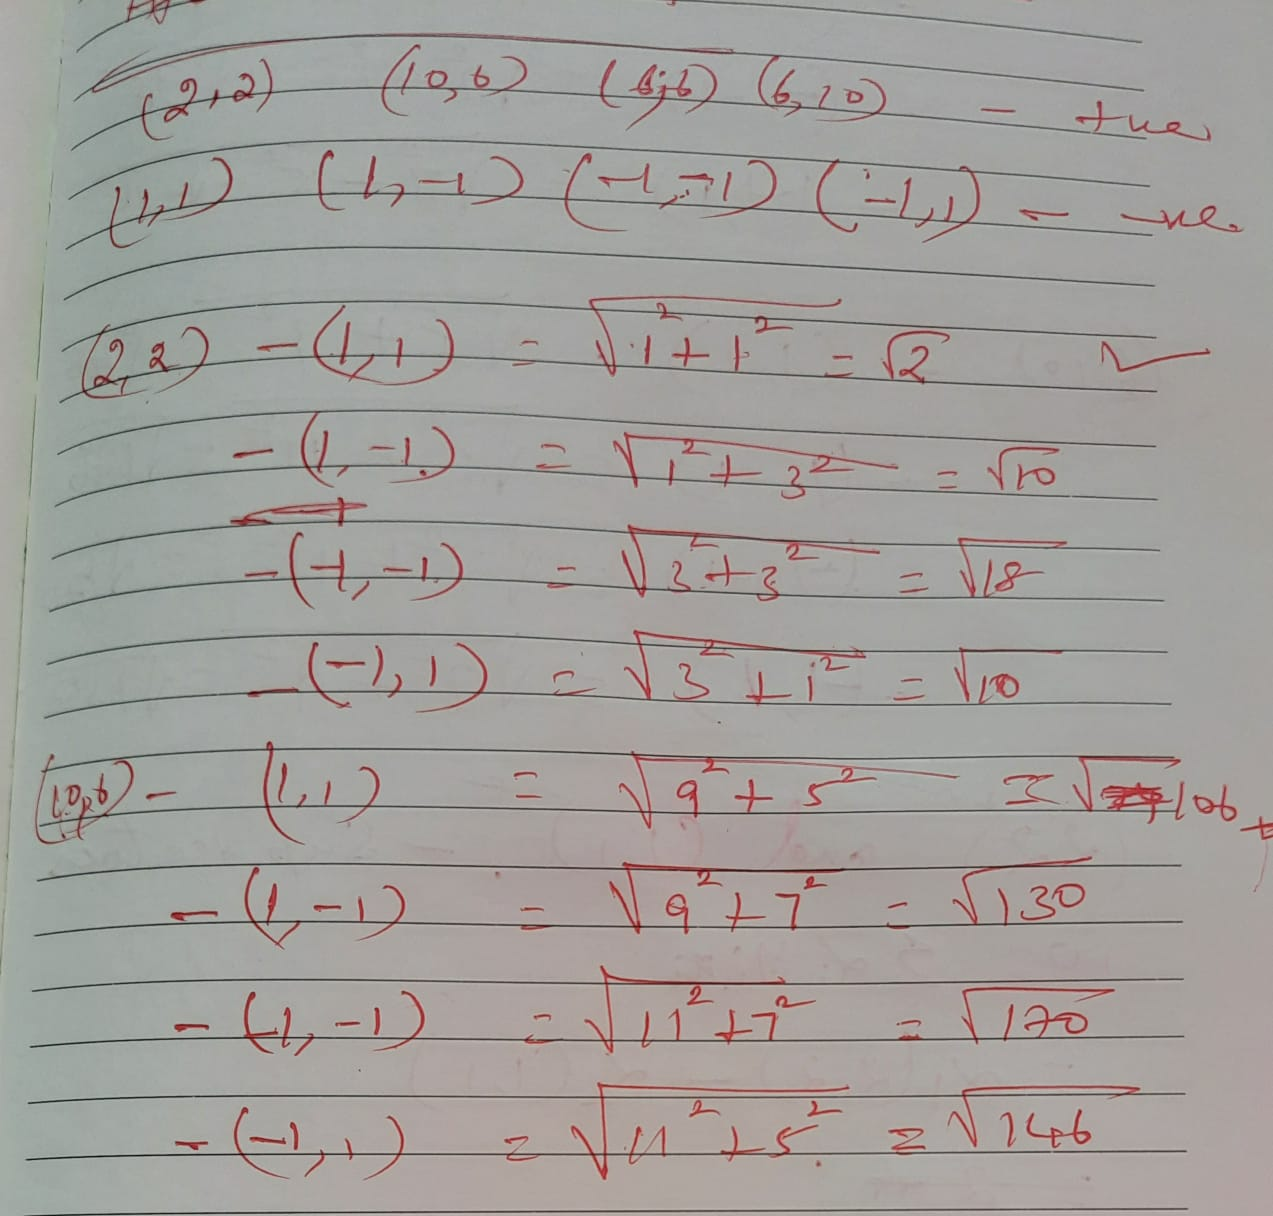 (2,2) (10,6) (6,6) (6,10) - +ve
(1,1) (1,-1) (-1,-1) (-1,1) - -ve.
(2,2) - (1,1) = √1²+1² = √2 ✓
- (1,-1) = √1²+3² = √10
- (-1,-1) = √3²+3² = √18
- (-1,1) = √3²+1² = √10
(10,6) - (1,1) = √9²+5² = √106
- (1,-1) = √9²+7² = √130
- (-1,-1) = √11²+7² = √170
- (-1,1) = √11²+5² = √146